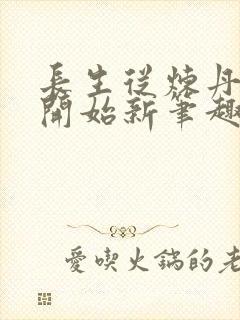 長生從煉丹
開始新筆趣
愛喫火鍋的老